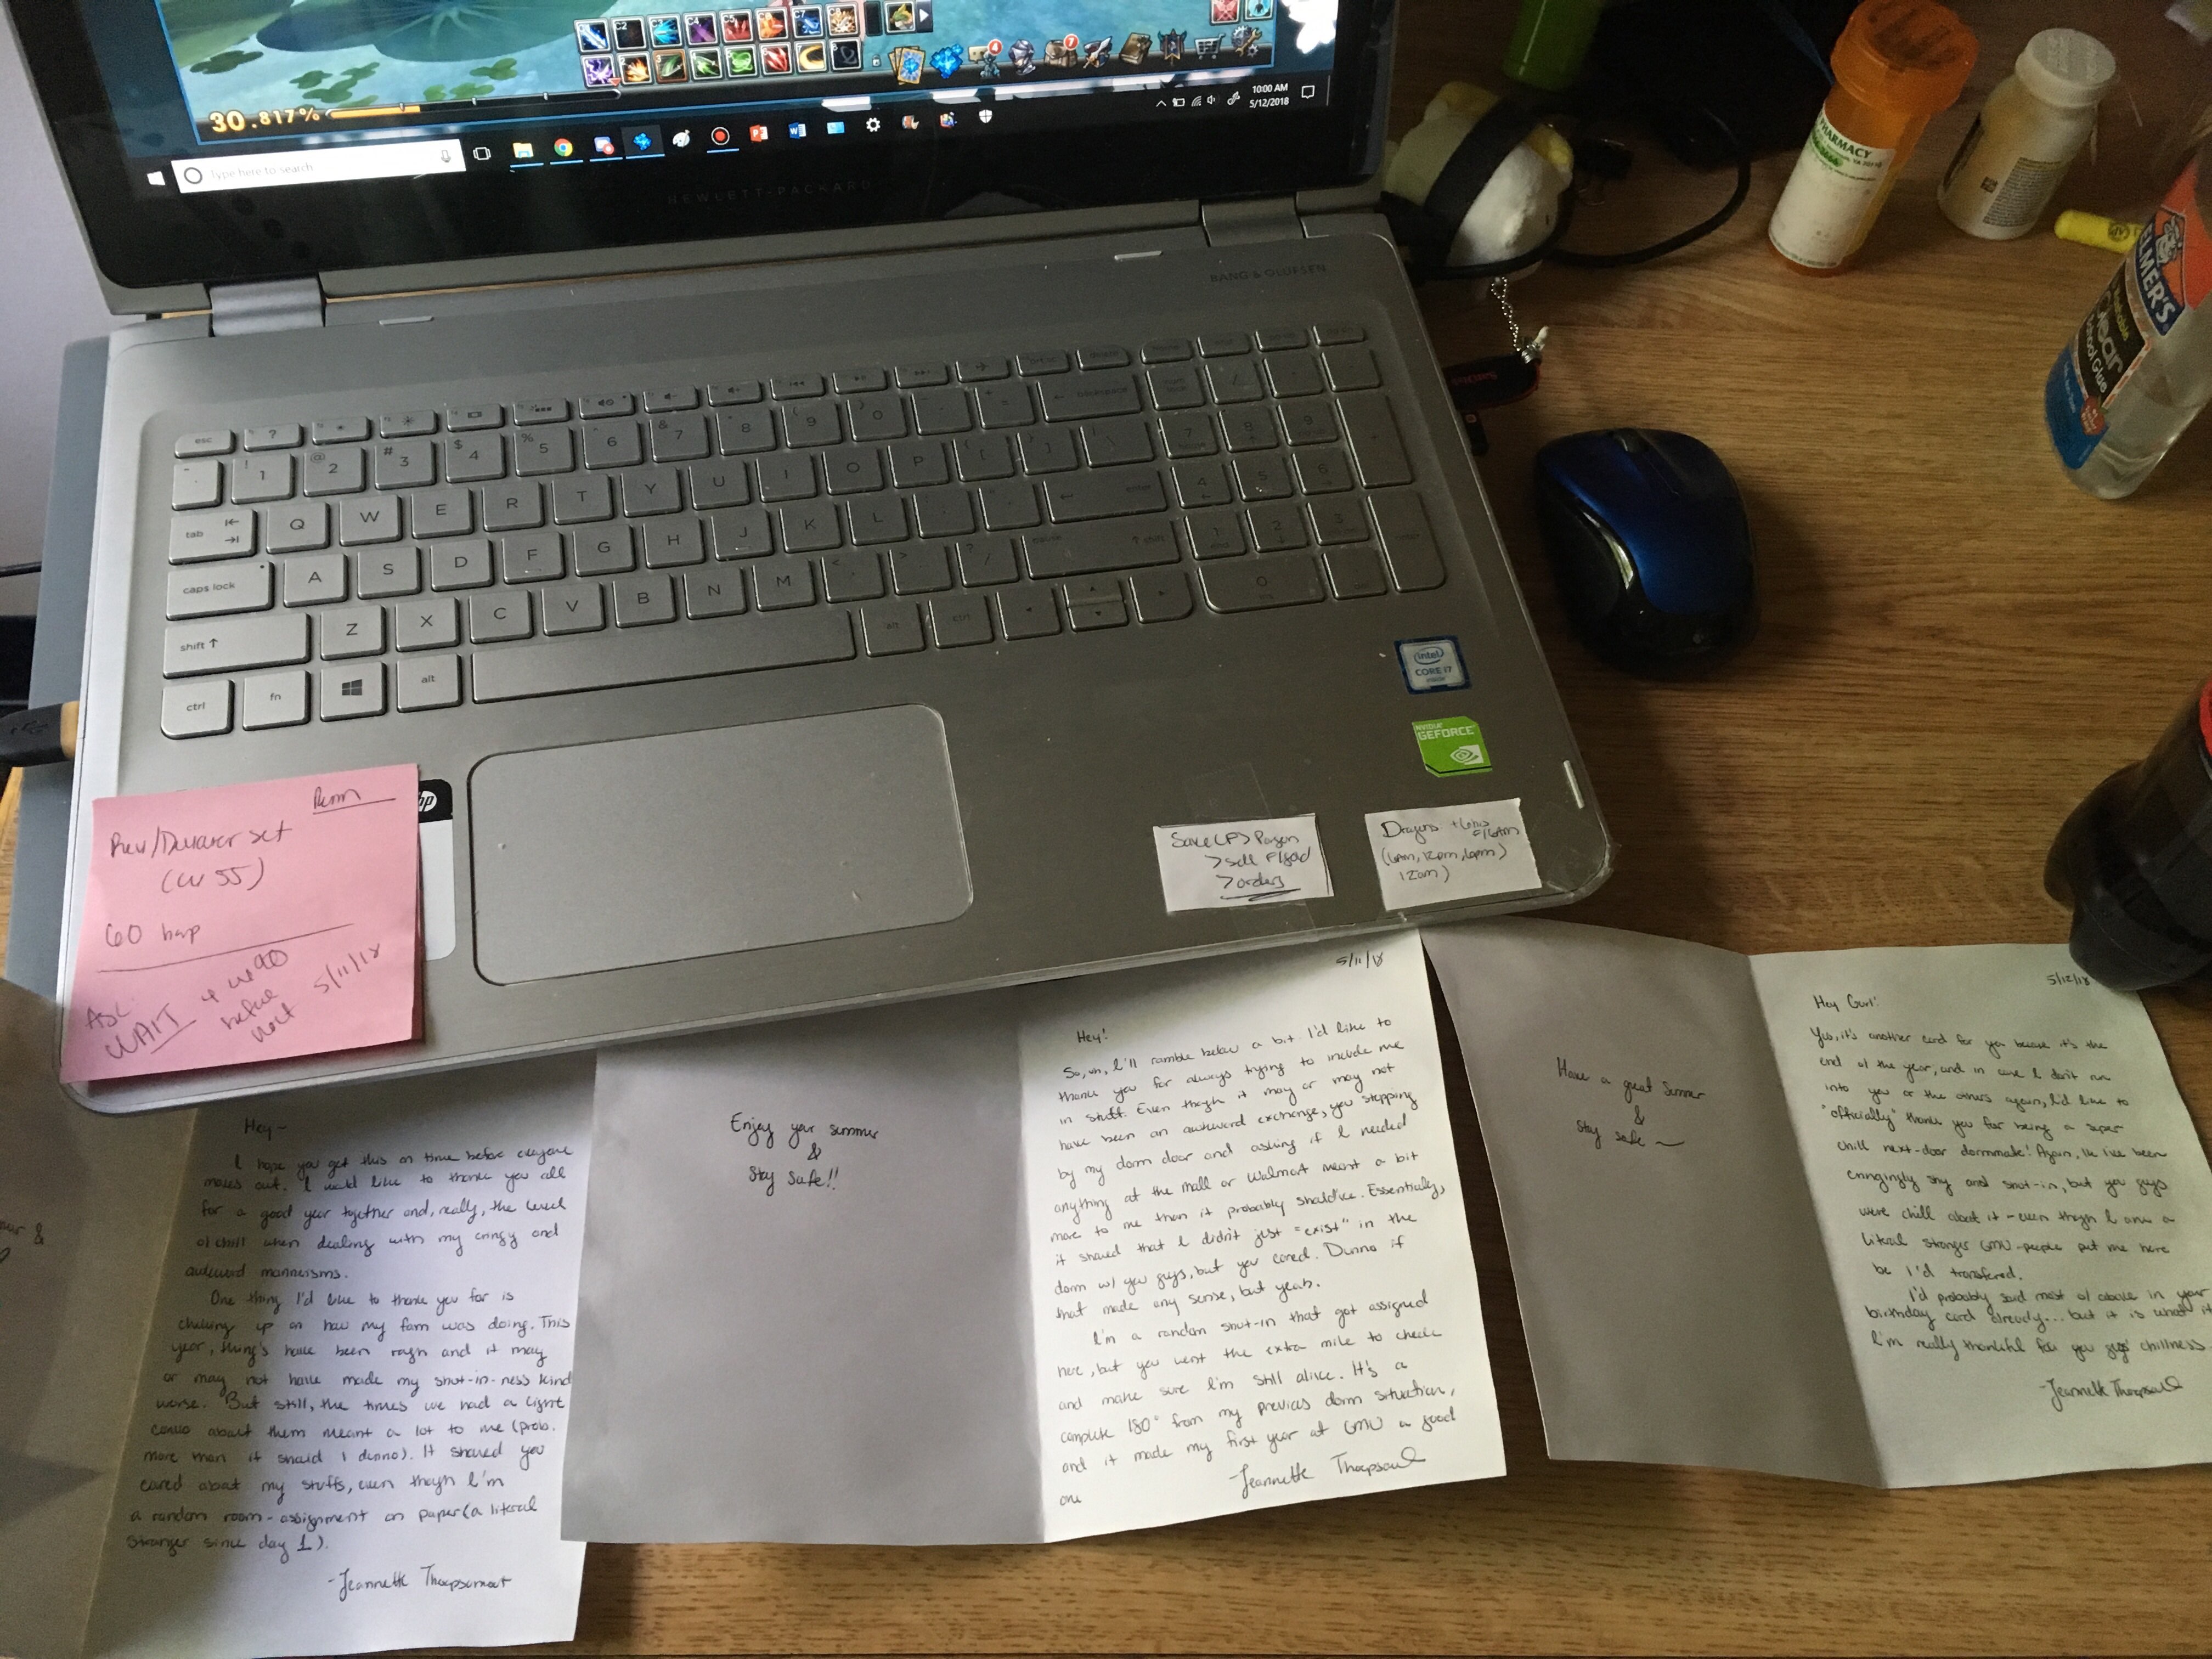 30.817%
C2
C3
C4
C5
C7
C8
4
7
Type here to search
10:00 AM
5/12/2018
HEWLETT-PACKARD
BANG & OLUFSEN
PHARMACY
ELMER'S
Washable
Clear
School Glue
SanDisk
esc
! 1 @ 2 # 3 $ 4 % 5 ^ 6 & 7 * 8 ( 9 ) 0 backspace
tab Q W E R T Y U I O P
caps lock A S D F G H J K L enter
shift Z X C V B N M shift
ctrl fn alt alt ctrl
7 8 9
4 5 6
1 2 3
0
intel
CORE i7
inside
NVIDIA
GEFORCE
hp
Rev/Devarer set
(LV 55)
60 harp
WAIT
before
next
5/11/18
> sell
> orders
Dragons
(6am, 12pm, 6pm)
12am)
Hey~
I hope you get this on time before everyone
moves out. I would like to thank you all
for a good year together and, really, the level
of chill when dealing with my cringy and
awkward mannerisms.
One thing I'd like to thank you for is
checking up on how my fam was doing. This
year, thing's have been rough and it may
or may not have made my shut-in-ness kind
worse. But still, the times we had a light
convo about them meant a lot to me (prob.
more than it should I dunno). It showed you
cared about my stuffs, even though I'm
a random room-assignment on paper (a literal
stranger since day 1).
-Jeannette
Enjoy your summer
&
Stay Safe!!
5/11/18
Hey!
So, um, I'll ramble below a bit I'd like to
thank you for always trying to include me
in stuff. Even though it may or may not
have been an awkward exchange, you stopping
by my dorm door and asking if I needed
anything at the mall or Walmart meant a bit
more to me than it probably should've. Essentially,
it showed that I didn't just "exist" in the
dorm w/ you guys, but you cared. Dunno if
that made any sense, but yeah.
I'm a random shut-in that got assigned
here, but you went the extra mile to check
and make sure I'm still alive. It's a
complete 180° from my previous dorm situation,
and it made my first year at GMU a good
one
-Jeannette
Have a great summer
&
Stay safe~
5/12/18
Hey Gurl!
Yes, it's another card for you because it's the
end of the year, and in case I don't run
into you or the others again, I'd like to
"officially" thank you for being a super
chill next-door dormmate! Again, I've been
cringingly shy and shut-in, but you guys
were chill about it - even though I am a
literal stranger GMU-people put me here
bc I'd transferred.
I'd probably said most of above in your
birthday card already... but it is what it
I'm really thankful for you guys' chillness.
-Jeannette